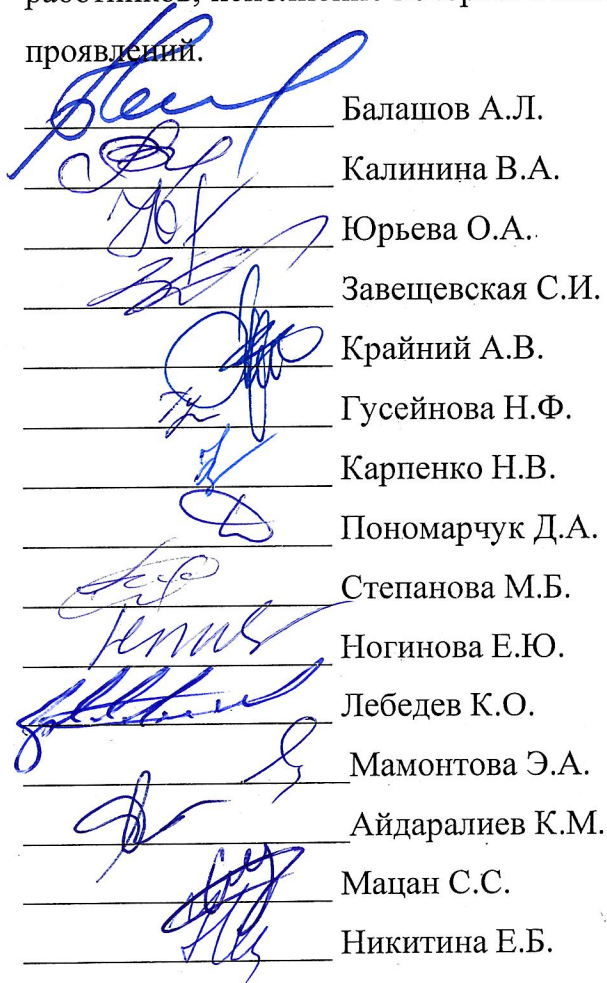 проявлений.
Балашов А.Л.
Калинина В.А.
Юрьева О.А.
Завещевская С.И.
Крайний А.В.
Гусейнова Н.Ф.
Карпенко Н.В.
Пономарчук Д.А.
Степанова М.Б.
Ногинова Е.Ю.
Лебедев К.О.
Мамонтова Э.А.
Айдаралиев К.М.
Мацан С.С.
Никитина Е.Б.